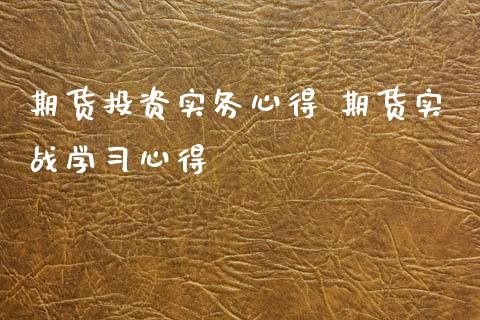 期货投资实务心得 期货实
战学习心得